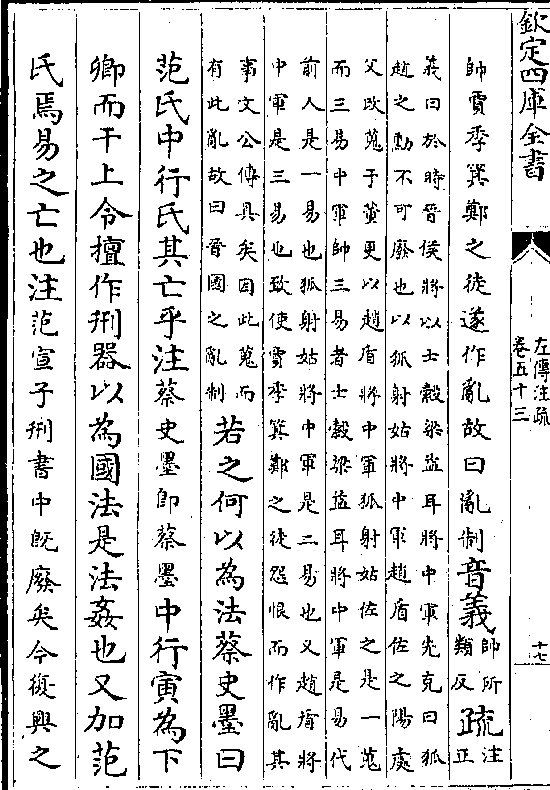 欽定四庫全書
左傳注疏
卷五十三
十七
帥賈季箕鄭之徒遂作亂故曰亂制音義帥所類反疏注正
義曰於時晉侯將以士縠梁益耳將中軍先克曰狐
趙之勲不可廢也以狐射姑將中軍趙盾佐之陽處
父改蒐于董更以趙盾將中軍狐射姑佐之是一蒐
而三易中軍帥三易者士縠梁益耳將中軍是易代
前人是一易也狐射姑將中軍是二易也又趙盾將
中軍是三易也致使賈季箕鄭之徒怨恨而作亂其
事文公傳具矣因此蒐而
有此亂故曰晉國之亂制
若之何以為法蔡史墨曰
范氏中行氏其亡乎注蔡史墨即蔡墨中行寅為下
卿而干上令擅作刑器以為國法是法姦也又加范
氏焉易之亡也注范宣子刑書中既廢矣今復興之